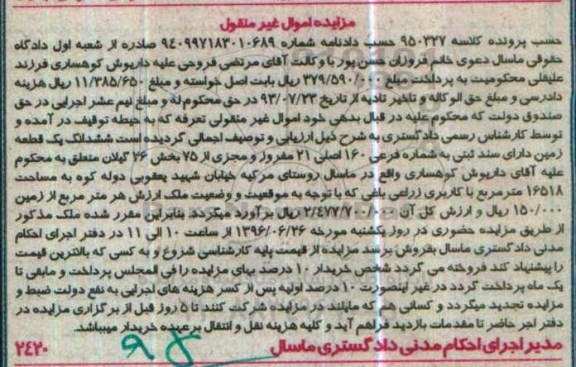 مزایده اموال غیر منقول
حسب پرونده کلاسه ۹۵۰۳۲۷ حسب دادنامه شماره ۹۴۰۹۹۷۱۸۳۰۱۰۶۸۹ صادره از شعبه اول دادگاه
حقوقی ماسال دعوی خانم فروزان حسن پور با وکالت آقای مرتضی فروحی علیه داریوش کوهساری فرزند
علیقلی محکومیت به پرداخت مبلغ ۳۷۹/۵۹۰/۰۰۰ ریال بابت اصل خواسته و مبلغ ۱۱/۳۸۵/۶۵۰ ریال هزینه
دادرسی و مبلغ حق الوکاله و تاخیر تادیه از تاریخ ۹۳/۰۷/۲۳ در حق محکوم له و مبلغ نیم عشر اجرایی در حق
صندوق دولت که محکوم علیه در قبال بدهی خود اموال غیر منقولی تعرفه که به حیطه توقیف در آمده و
توسط کارشناس رسمی دادگستری به شرح ذیل ارزیابی و توصیف اجمالی گردیده است ششدانگ یک قطعه
زمین دارای سند ثبتی به شماره فرعی ۱۶۰ اصلی ۲۱ مفروز و مجزی از ۷۵ بخش ۲۶ گیلان متعلق به محکوم
علیه آقای داریوش کوهساری واقع در ماسال روستای مرکیه خیابان شهید یعقوبی دوله کوه به مساحت
۱۶۵۱۸ متر مربع با کاربری زراعی باغی که با توجه به موقعیت و وضعیت ملک ارزش هر متر مربع از زمین
۱۵۰/۰۰۰ ریال و ارزش کل آن ۲/۴۷۷/۷۰۰/۰۰۰ ریال برآورد میگردد بنابراین مقرر شده ملک مذکور
از طریق مزایده حضوری در روز یکشنبه مورخه ۱۳۹۶/۰۶/۲۶ از ساعت ۱۰ الی ۱۱ در دفتر اجرای احکام
مدنی دادگستری ماسال بفروش برسد مزایده از قیمت پایه کارشناسی شروع و به کسی که بالاترین قیمت
را پیشنهاد کند فروخته می گردد شخص خریدار ۱۰ درصد بهای مزایده را فی المجلس پرداخت و مابقی تا
یک ماه پرداخت گردد در غیر اینصورت ۱۰ درصد اولیه پس از کسر هزینه های اجرایی به نفع دولت ضبط و
مزایده تجدید میگردد و کسانی هم که مایلند در مزایده شرکت کنند تا ۵ روز قبل از برگزاری مزایده در
دفتر اجر حاضر تا مقدمات بازدید فراهم آید و کلیه هزینه نقل و انتقال بر عهده خریدار میباشد.
مدیر اجرای احکام مدنی دادگستری ماسال
۲۴۲۰